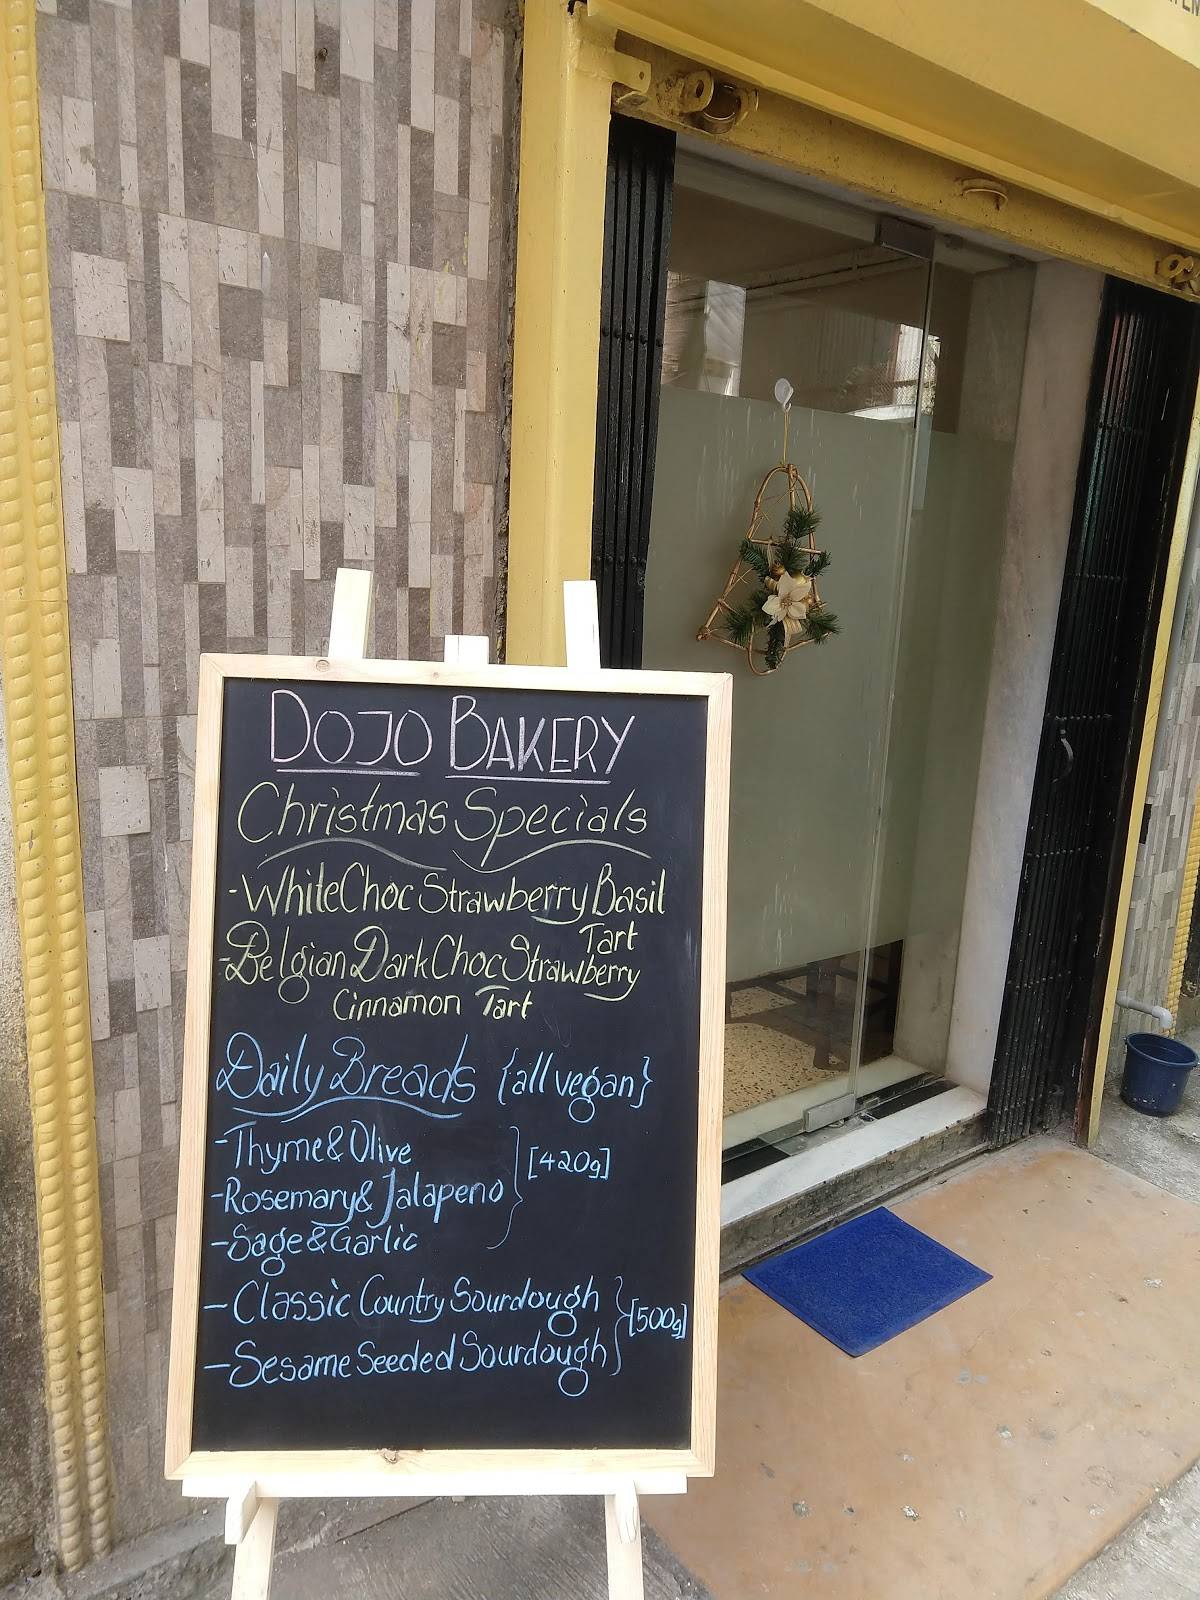 DOJO BAKERY
Christmas Specials
-White Choc Strawberry Basil
Tart
-Belgian Dark Choc Strawberry
Cinnamon Tart
Daily Breads {all vegan}
-Thyme & Olive
-Rosemary & Jalapeno } [420g]
-Sage & Garlic
-Classic Country Sourdough
-Sesame Seeded Sourdough } [500g]